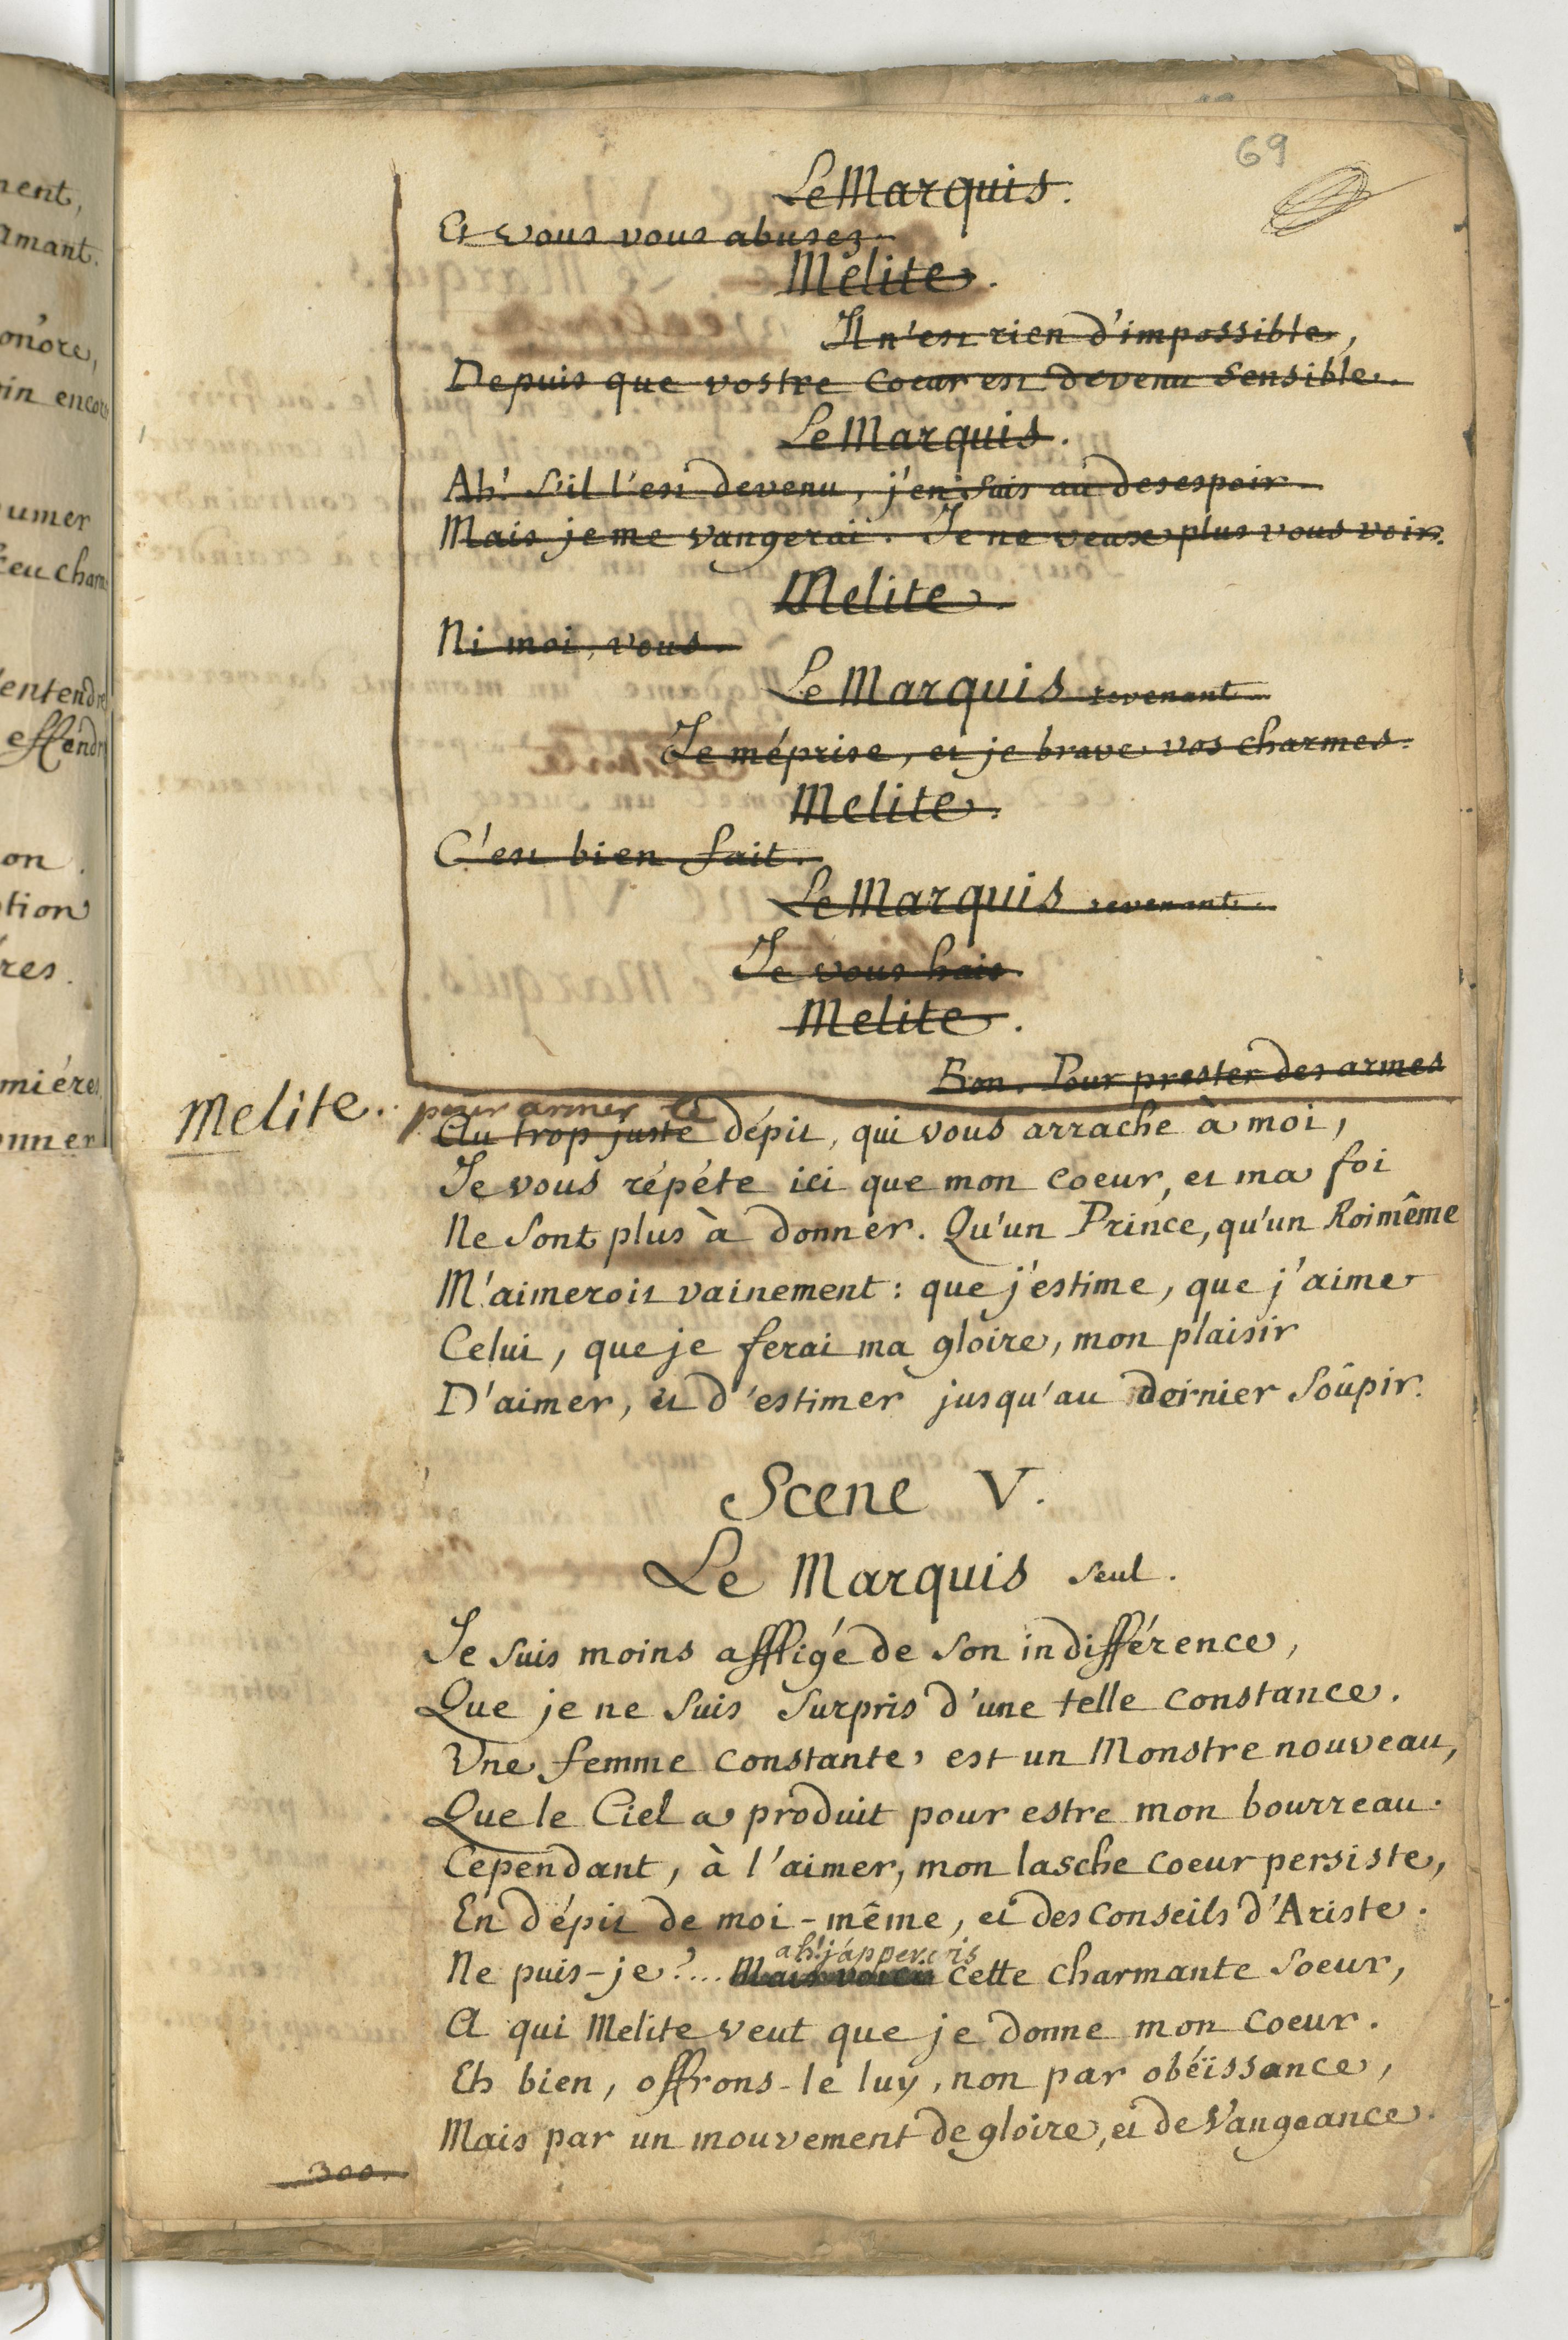 69
Le Marquis.
Et vous vous abusez.
Melite.
Il n'est rien d'impossible,
Depuis que vostre coeur est devenu sensible.
Le Marquis.
Ah! s'il l'est devenu, j'en suis au desespoir.
Mais je me vangerai. Je ne veux plus vous voir.
Melite.
Ni moi, vous.
Le Marquis revenant.
Je méprise, et je brave vos charmes.
Melite.
C'est bien fait.
Le Marquis revenant.
Je vous hais.
Melite.
Bon. Pour prester des armes
Melite. pour armer le
Au trop juste dépit, qui vous arrache à moi,
Je vous répéte ici que mon coeur, et ma foi
Ne sont plus à donner. Qu'un Prince, qu'un Roi même
M'aimeroit vainement: que j'estime, que j'aime
Celui, que je ferai ma gloire, mon plaisir
D'aimer, et d'estimer jusqu'au dernier soûpir.
Scene V.
Le Marquis seul.
Je suis moins affligé de son indifférence,
Que je ne suis surpris d'une telle constance.
Une femme constante, est un Monstre nouveau,
Que le Ciel a produit pour estre mon bourreau.
Cependant, à l'aimer, mon lasche coeur persiste,
En dépit de moi-même, et des conseils d'Ariste.
ah! j'apperçois
Ne puis-je?.... Mais voici cette charmante soeur,
A qui Melite veut que je donne mon coeur.
Eh bien, offrons-le luy, non par obéïssance,
Mais par un mouvement de gloire, et de vangeance.
300.
ment,
amant.
onore,
in encore
umer
feu charm
entendre
effendr
on.
tion
res.
miéres
onner